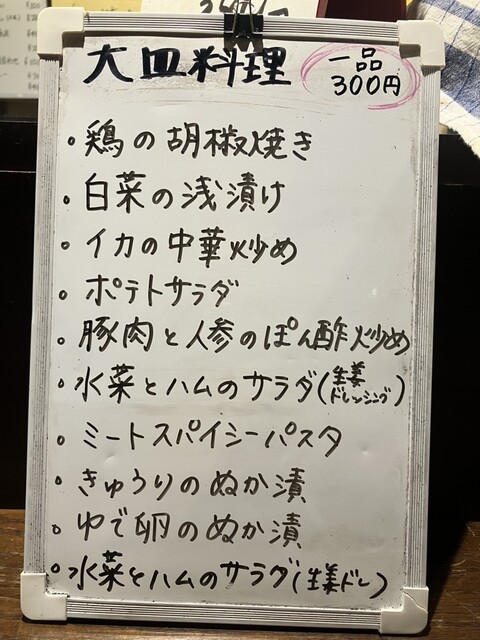 大皿料理
一品
300円
・鶏の胡椒焼き
・白菜の浅漬け
・イカの中華炒め
・ポテトサラダ
・豚肉と人参のぽん酢炒め
・水菜とハムのサラダ(生姜ドレッシング)
・ミートスパイシーパスタ
・きゅうりのぬか漬
・ゆで卵のぬか漬
・水菜とハムのサラダ(生姜ドレ)